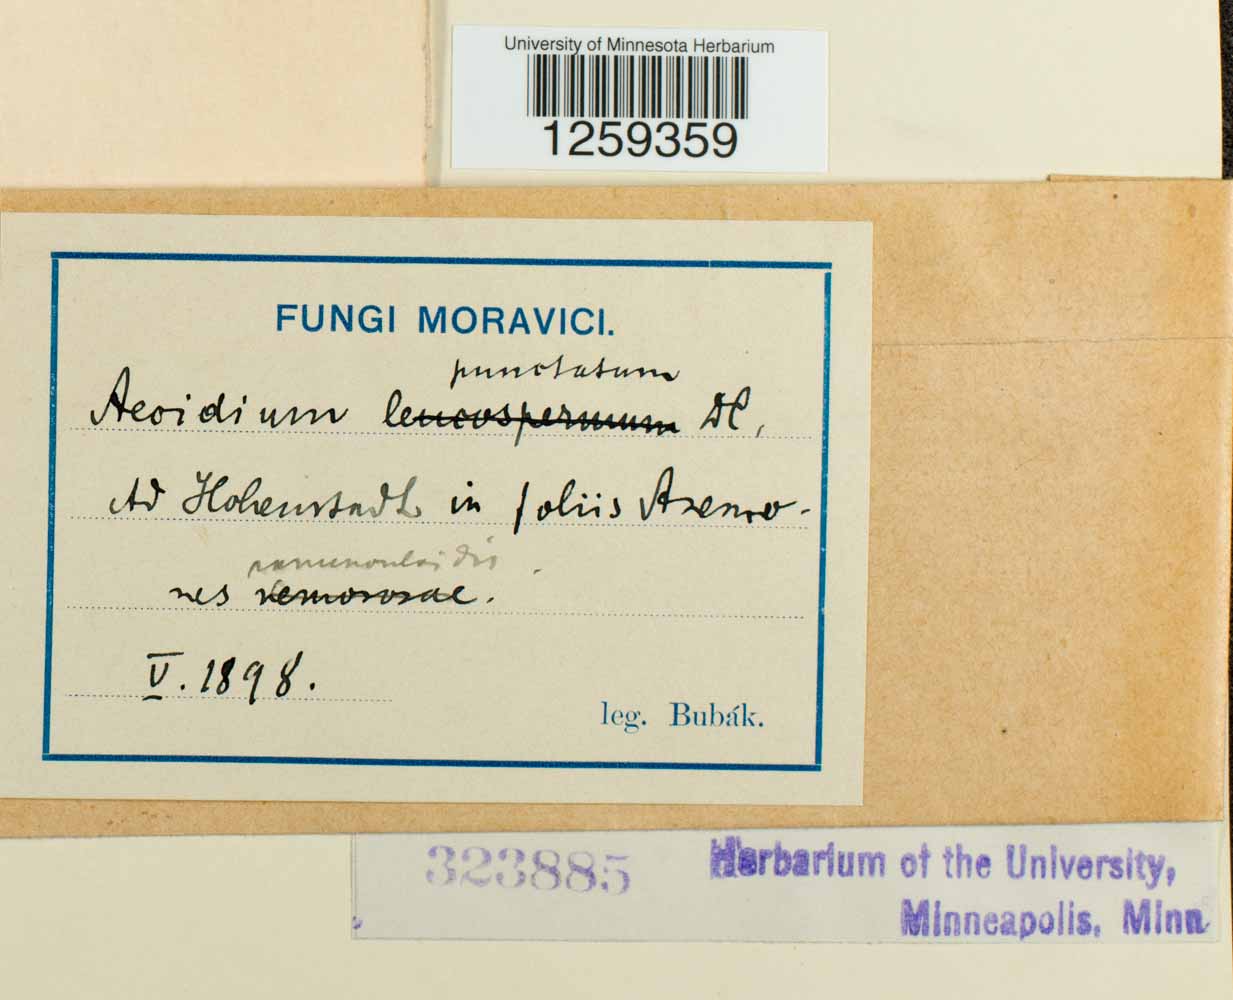 University of Minnesota Herbarium
1259359
FUNGI MORAVICI.
punctatum
Aecidium leucospermum DC,
Ad Hohenstadt in foliis Anemo-
ranunculoidis
nes nemorosae.
V. 1898.
leg. Bubák.
323885
Herbarium of the University,
Minneapolis, Minn